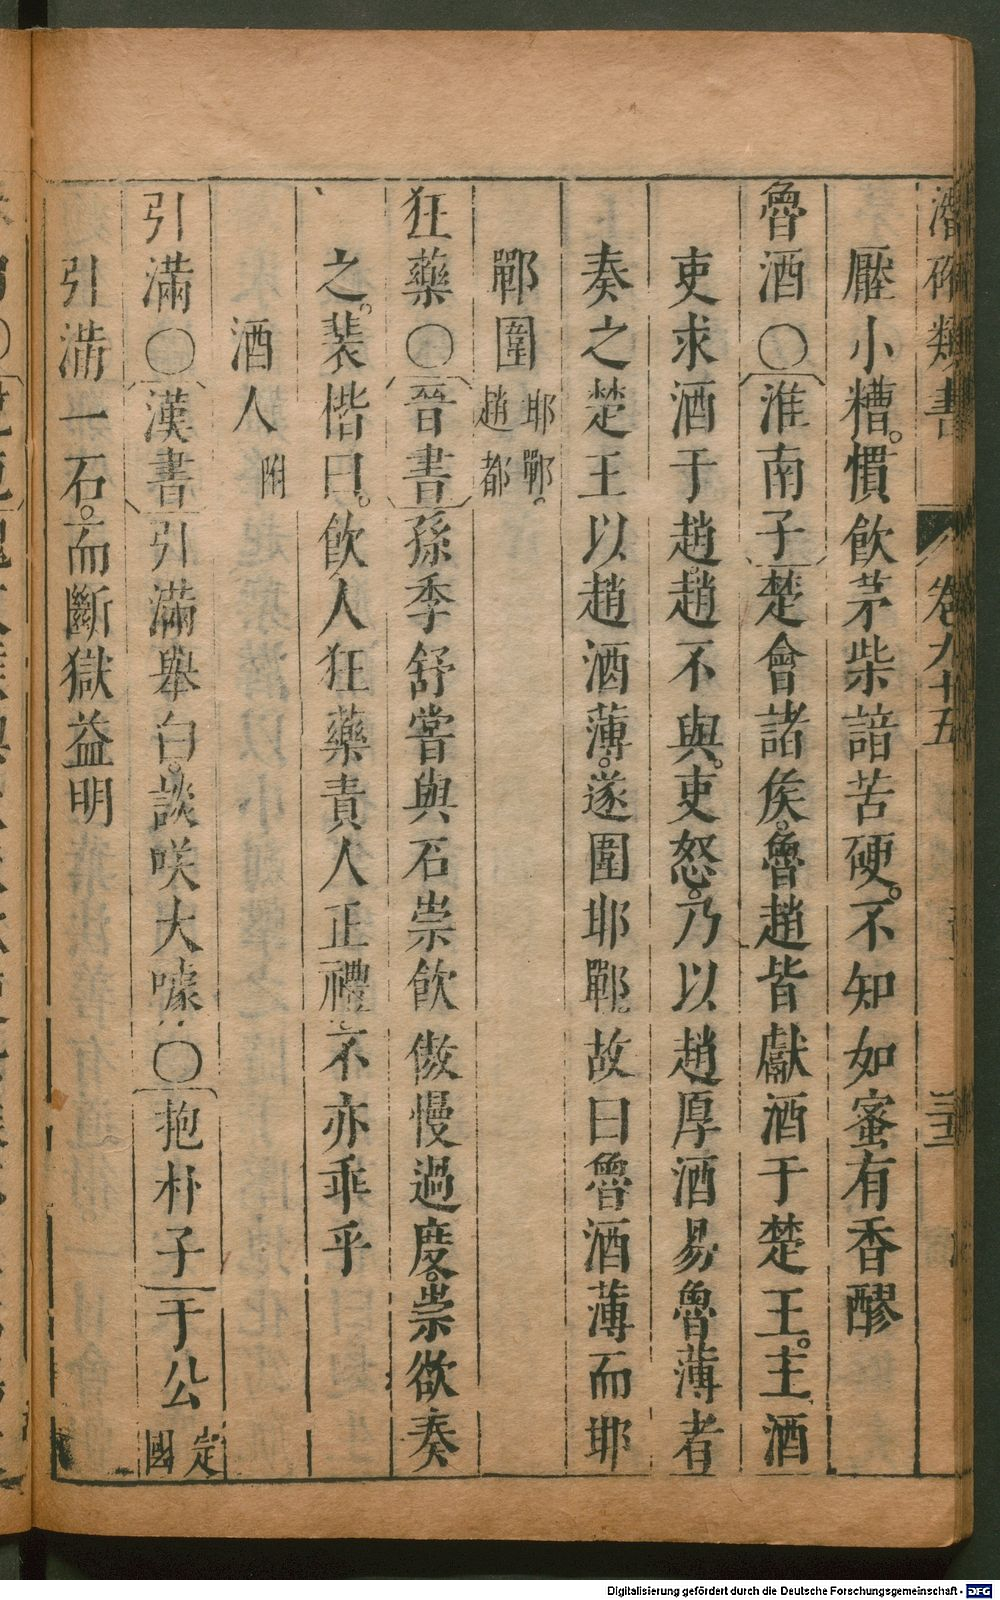 潛確類書 卷九十五
壓小糟。慣飲茅柴諳苦硬。不知如蜜有香醪
魯酒〇淮南子楚會諸侯。魯趙皆獻酒于楚王。主酒
吏求酒于趙。趙不與。吏怒。乃以趙厚酒易魯薄者
奏之楚王以趙酒薄。遂圍邯鄲。故曰魯酒薄而邯
鄲圍 邯鄲。趙都
狂藥〇晉書孫季舒嘗與石崇飲傲慢過度。崇欲奏
之。裴楷曰。飲人狂藥責人正禮不亦乖乎
酒人 附
引滿〇漢書引滿舉白。談咲大噱〇抱朴子于公定國
引滿一石。而斷獄益明
Digitalisierung gefördert durch die Deutsche Forschungsgemeinschaft - DFG